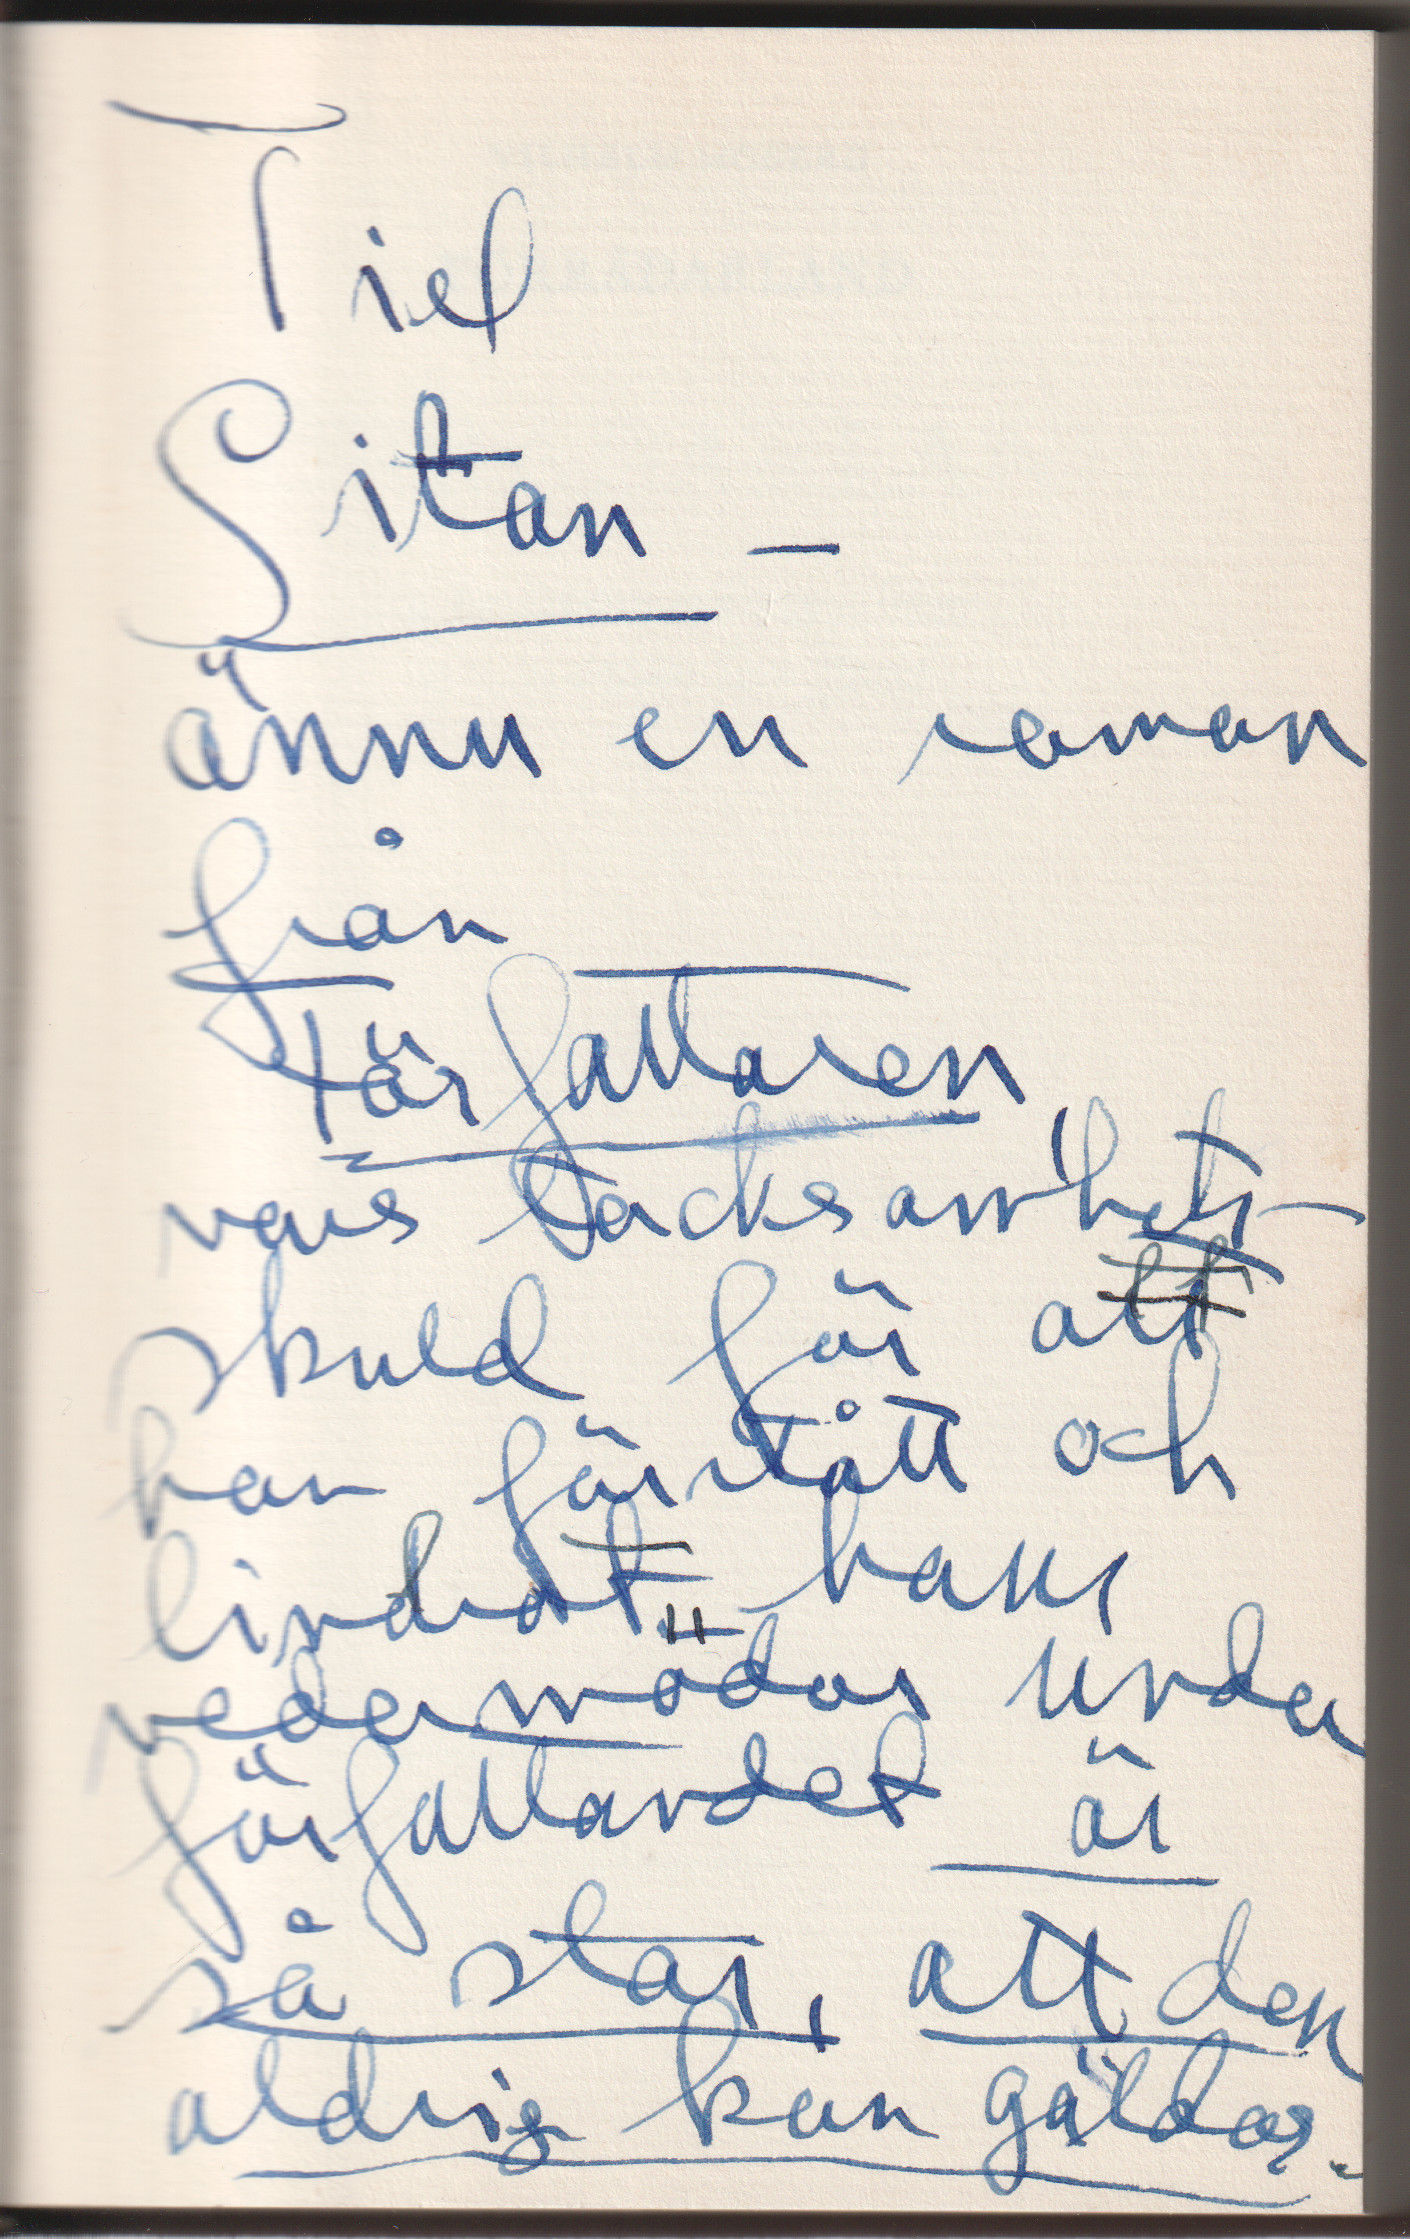 Till
Gitan –
ännu en roman
från
författaren,
vars tacksamhets-
skuld för att
han förstått och
lindrat hans
vedermödor under
författandet är
så stor, att den
aldrig kan gäldas.